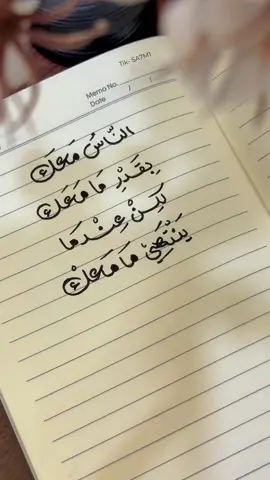 Tik- SA7M1
Memo No.
Date / /
النَّاسُ مَعَكَ
بِقَدْرِ مَا مَعَكَ
لَكِنْ عِنْدَمَا
يَنْتَهِيْ مَا مَعَكْ